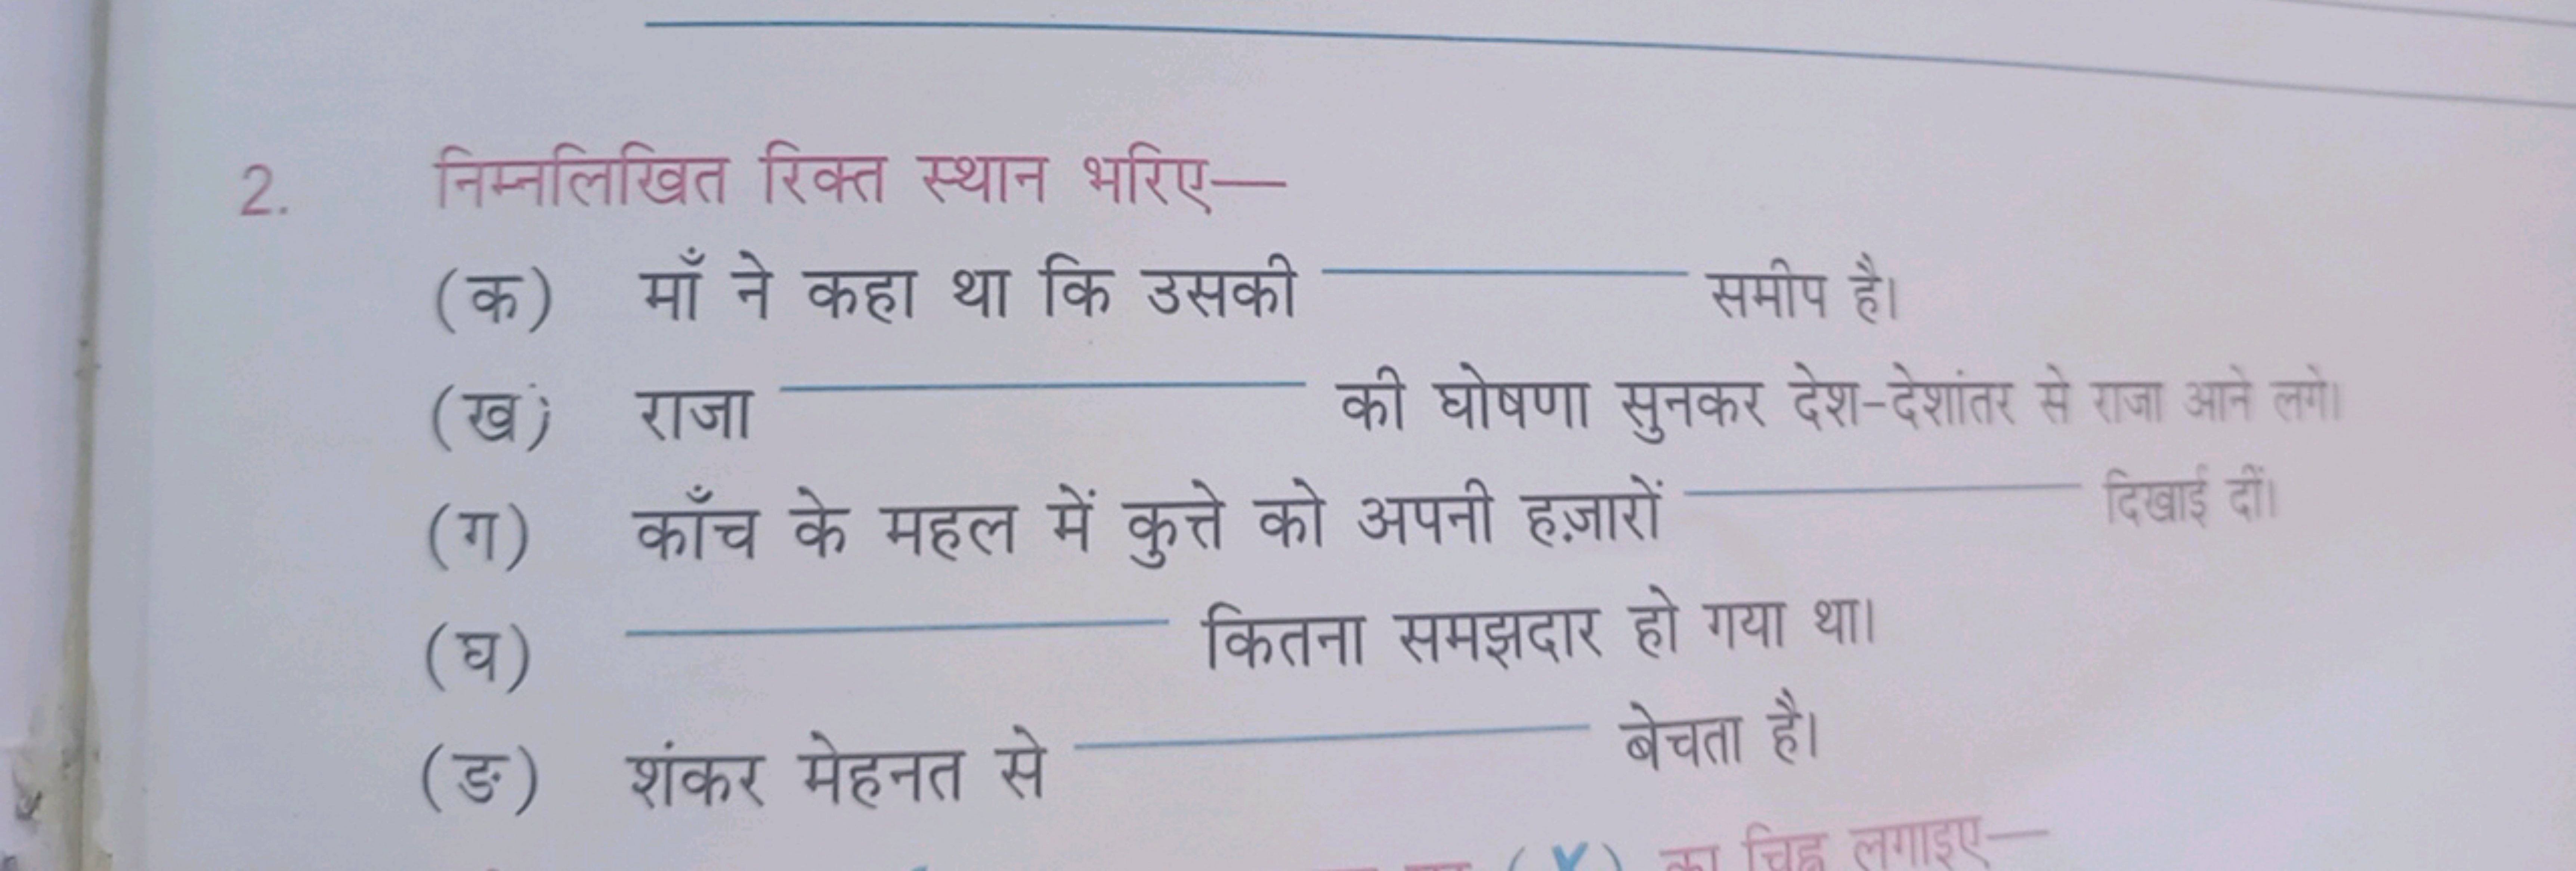 2. निम्नलिखित रिक्त स्थान भरिए—
(क) माँ ने कहा था कि उसकी ________ समीप है।
(ख) राजा ________ की घोषणा सुनकर देश-देशांतर से राजा आने लगे।
(ग) काँच के महल में कुत्ते को अपनी हज़ारों ________ दिखाई दीं।
(घ) ________ कितना समझदार हो गया था।
(ङ) शंकर मेहनत से ________ बेचता है।
का चिह्न लगाइए—